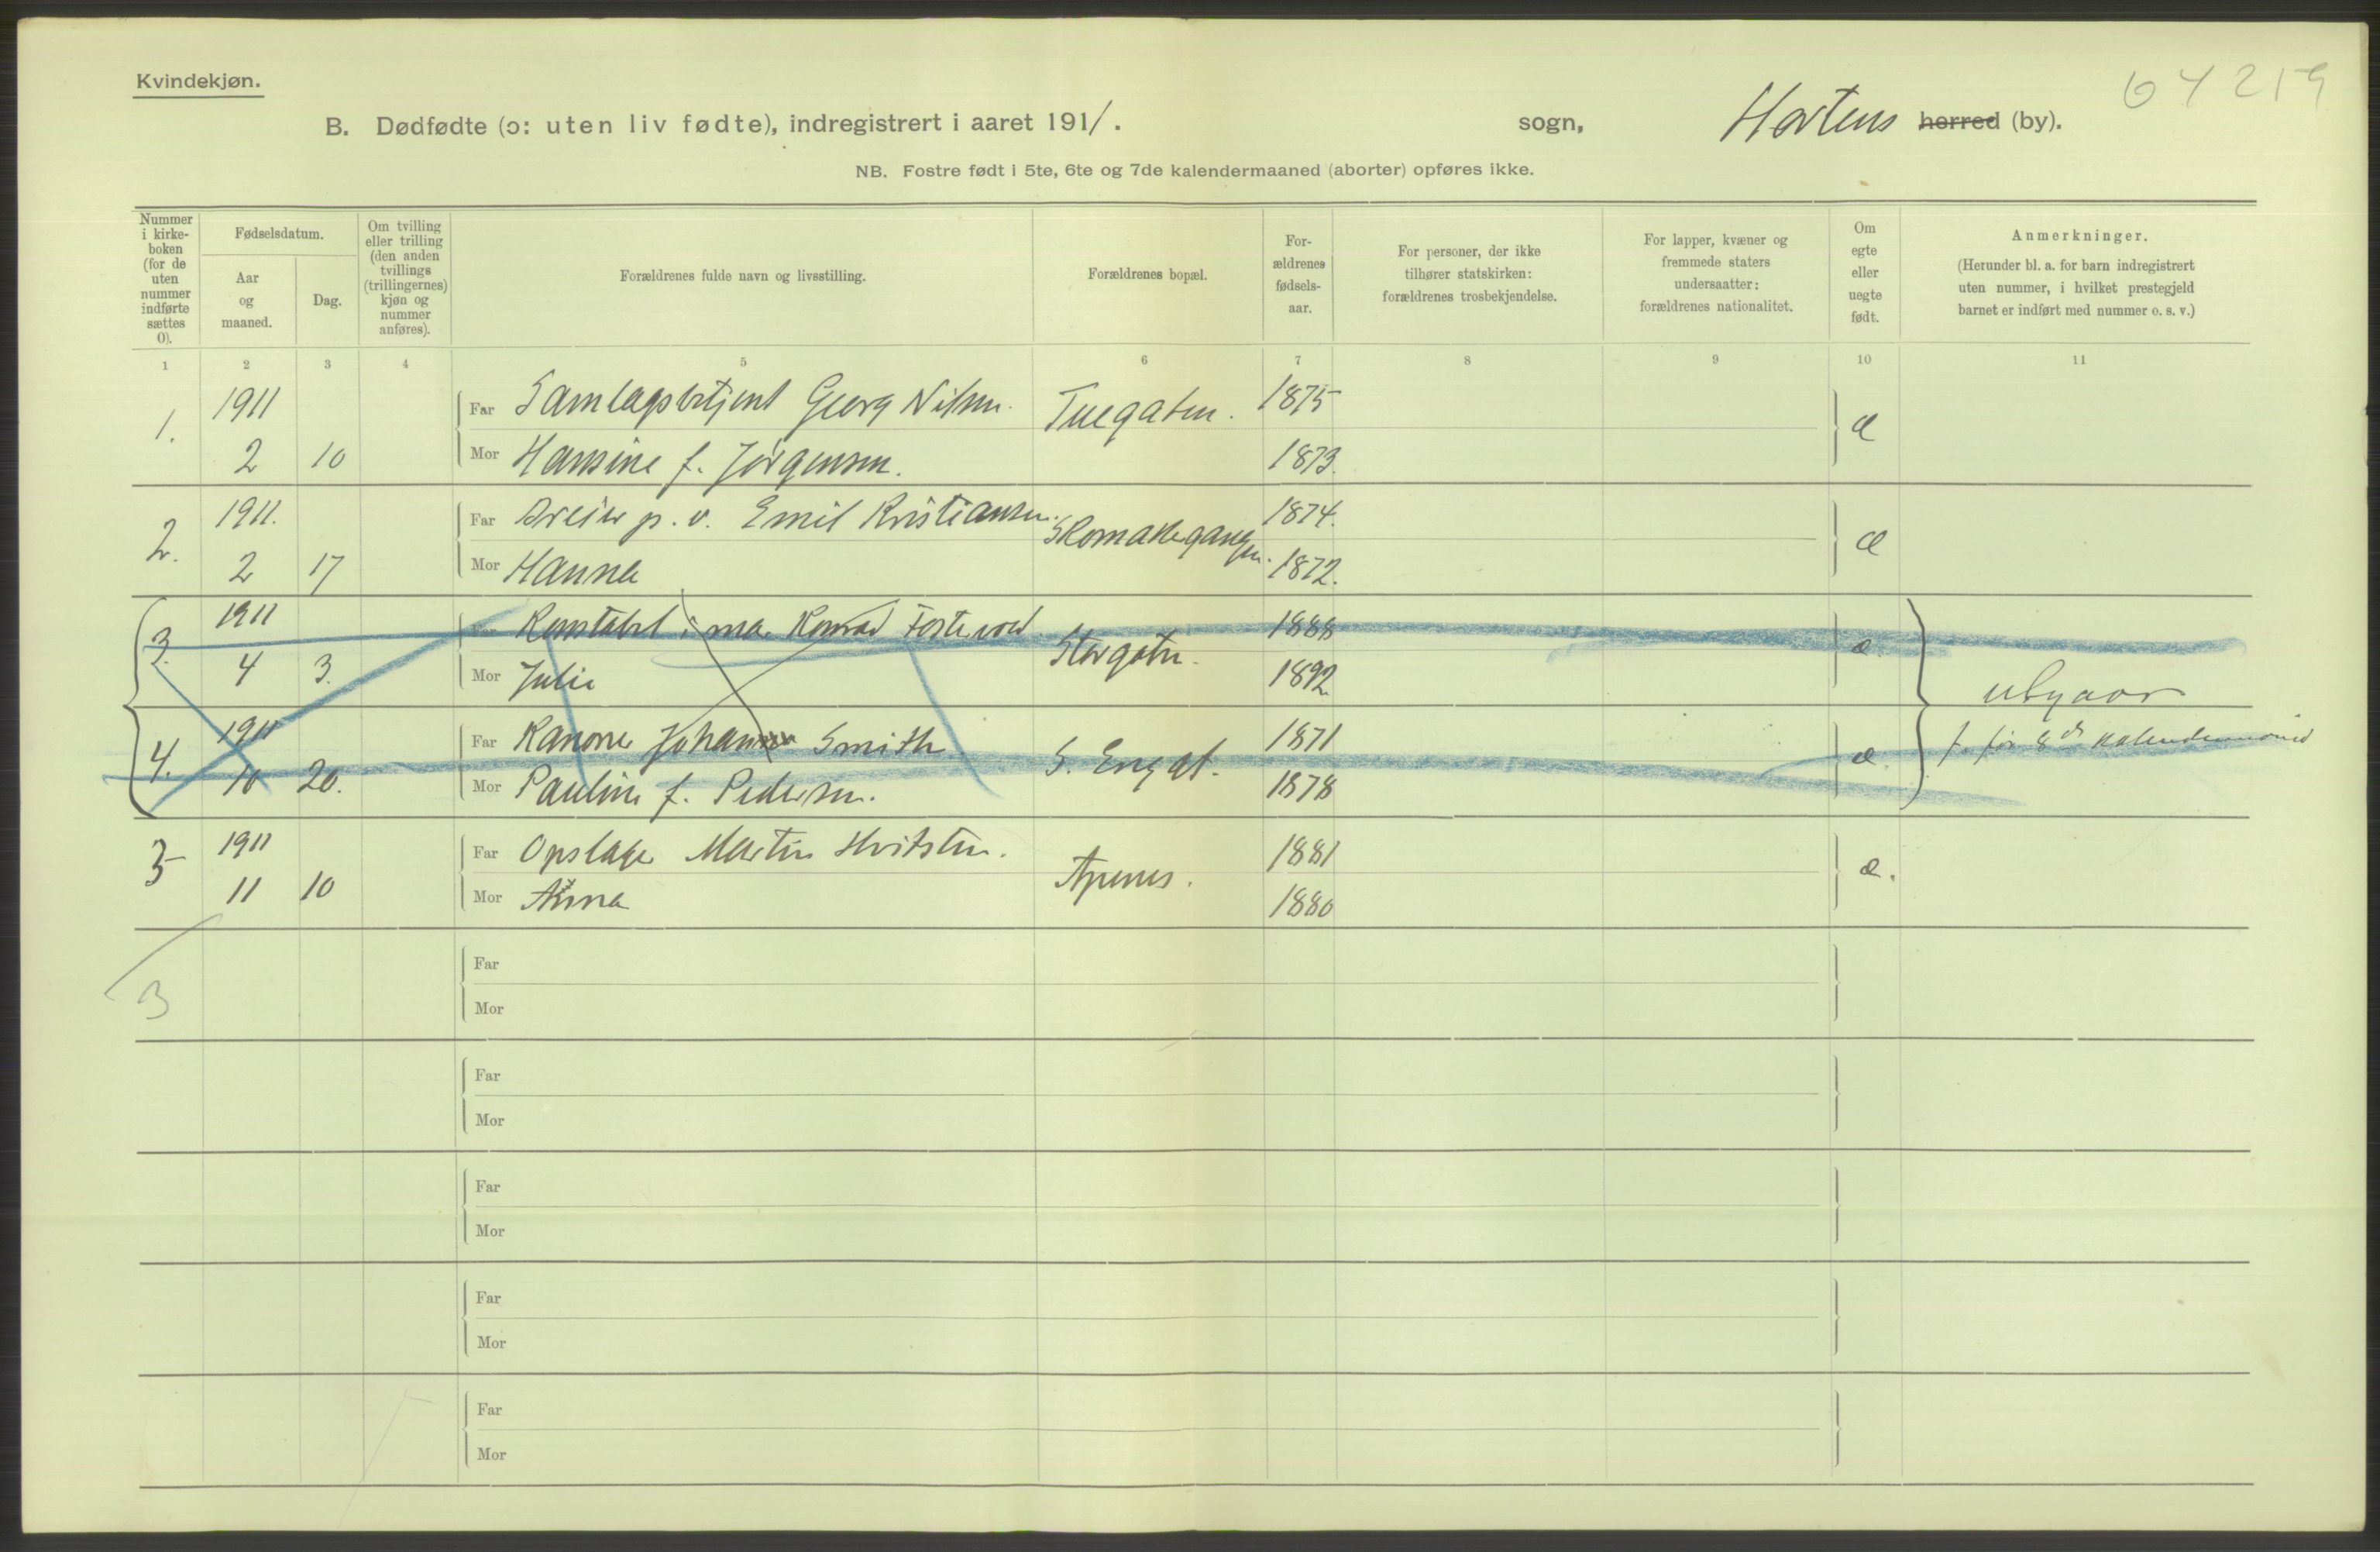 Kvindekjøn.
64 219
B. Dødfødte (ɔ: uten liv fødte), indregistrert i aaret 1911. sogn, Hortens herred (by).
NB. Fostre født i 5te, 6te og 7de kalendermaaned (aborter) opføres ikke.
Nummer i kirke-boken (for de uten nummer indførte sættes 0).
Fødselsdatum.
Aar og maaned.
Dag.
Om tvilling eller trilling (den anden tvillings (trillingernes) kjøn og nummer anføres).
Forældrenes fulde navn og livsstilling.
Forældrenes bopæl.
For-ældrenes fødsels-aar.
For personer, der ikke tilhører statskirken: forældrenes trosbekjendelse.
For lapper, kvæner og fremmede staters undersaatter: forældrenes nationalitet.
Om egte eller uegte født.
Anmerkninger.
(Herunder bl. a. for barn indregistrert uten nummer, i hvilket prestegjeld barnet er indført med nummer o. s. v.)
1 2 3 4 5 6 7 8 9 10 11
1. 1911 Far Samlagsbetjent Georg Nilsen. Tuegaten. 1875 æ
2 10 Mor Hansine f. Jørgensen. 1873.
2. 1911. Far Dreier p. v. Emil Kristiansen. Skomakergangen. 1874. æ
2 17 Mor Hanna 1872.
3. 1911 Far Konstabel i ma. Konrad Storgatn. 1888 æ
4 3. Mor Julie 1892
4. 1911 Far Kanoner Johan Smith S. Enggt. 1871 æ.
10 20. Mor Pauline f. Pedersen. 1878
f. før 8de kalendermåned
5 1911 Far Opslager Martin Hvitsten. Apenes. 1881 æ.
11 10 Mor Anna 1880
3
Far
Mor
Far
Mor
Far
Mor
Far
Mor
Far
Mor